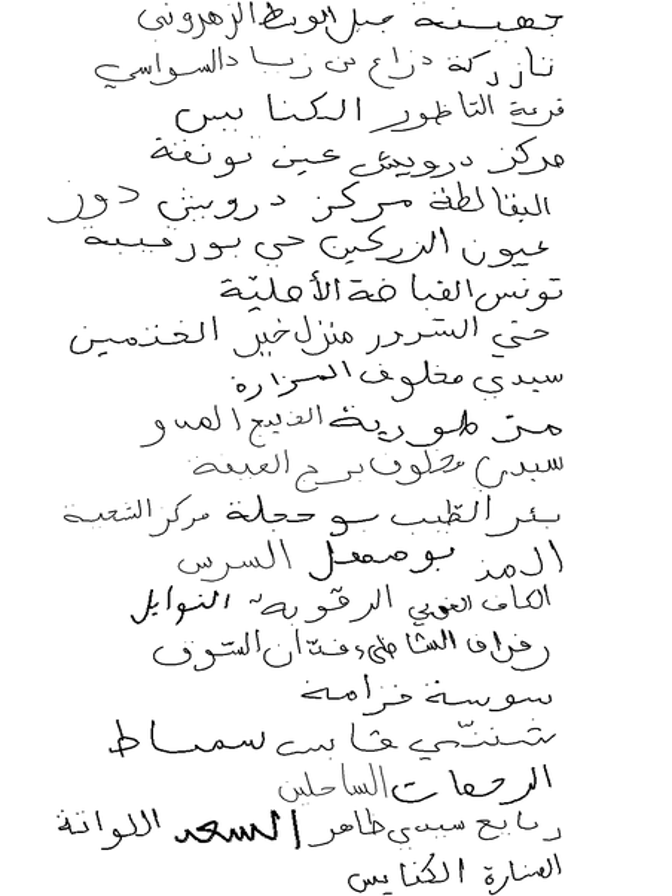 جهينة جبل الوسط الزهروني
تازركة ذراع بن زياد السواسي
قرعة الناظور الكنايس
مركز درويش عين نونفة
البقالطة مركز درويش دوز
عيون الزركين حي بورقيبة
تونس القباضة الأصلية
حتي السرور منزل خير الغنزمين
سيدي مخلوف المزارة
منزطورية الذبيح
سيدي مخلوف برج العيفة
بئر الطيب بو حجلة مركز الشعبية
بو صميعل السرس
الكاف الغربي الرقوبة النوايل
رفراف الشاطىء فتان السوق
سوسة خزامة
شنني قابس سماط
الرحمات الساحلين
ربايع سيدي ظاهر السعد اللواتة
المنارة الكنايس